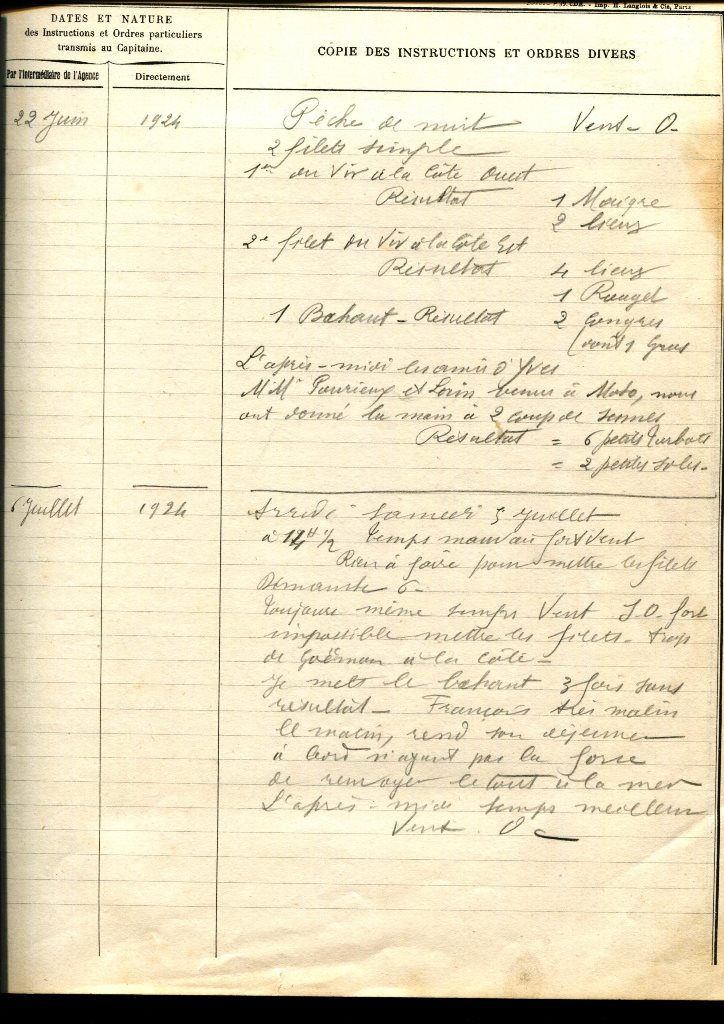 DATES ET NATURE
des Instructions et Ordres particuliers
transmis au Capitaine.
COPIE DES INSTRUCTIONS ET ORDRES DIVERS
Imp. H. Langlois & Cie, Paris
Par l'Intermédiaire de l'Agence
Directement
22 Juin 1924 Pêche de nuit Vent - O -
2 filets simple
1er du Viv à la Côte Ouest
Résultat 1 Maigre
2 lieux
2e filet du Viv à la Côte Est
Résultat 4 lieux
1 Rouget
1 Bahaut - Résultat 2 Congres
(dont 1 Gros
L'après-midi les amis d'Yves
M.Mrs et venus à nous
ont donné la main à 2 coup de sennes
Résultat = 6 petits turbots
= 2 petites soles -
6 Juillet 1924 Samedi 5 Juillet
à H 1/2 temps mauvais fort vent
Rien à faire pour mettre les filets
Dimanche 6 -
Toujours même temps Vent S.O. fort
impossible mettre les filets - trop
de Goëmon à la côte -
Je mets le bahaut 3 fois sans
résultat - François très malin
le matin, rend son déjeuner
à bord n'ayant pas la force
de renvoyer le tout à la mer
L'après-midi temps meilleur
Vent . O